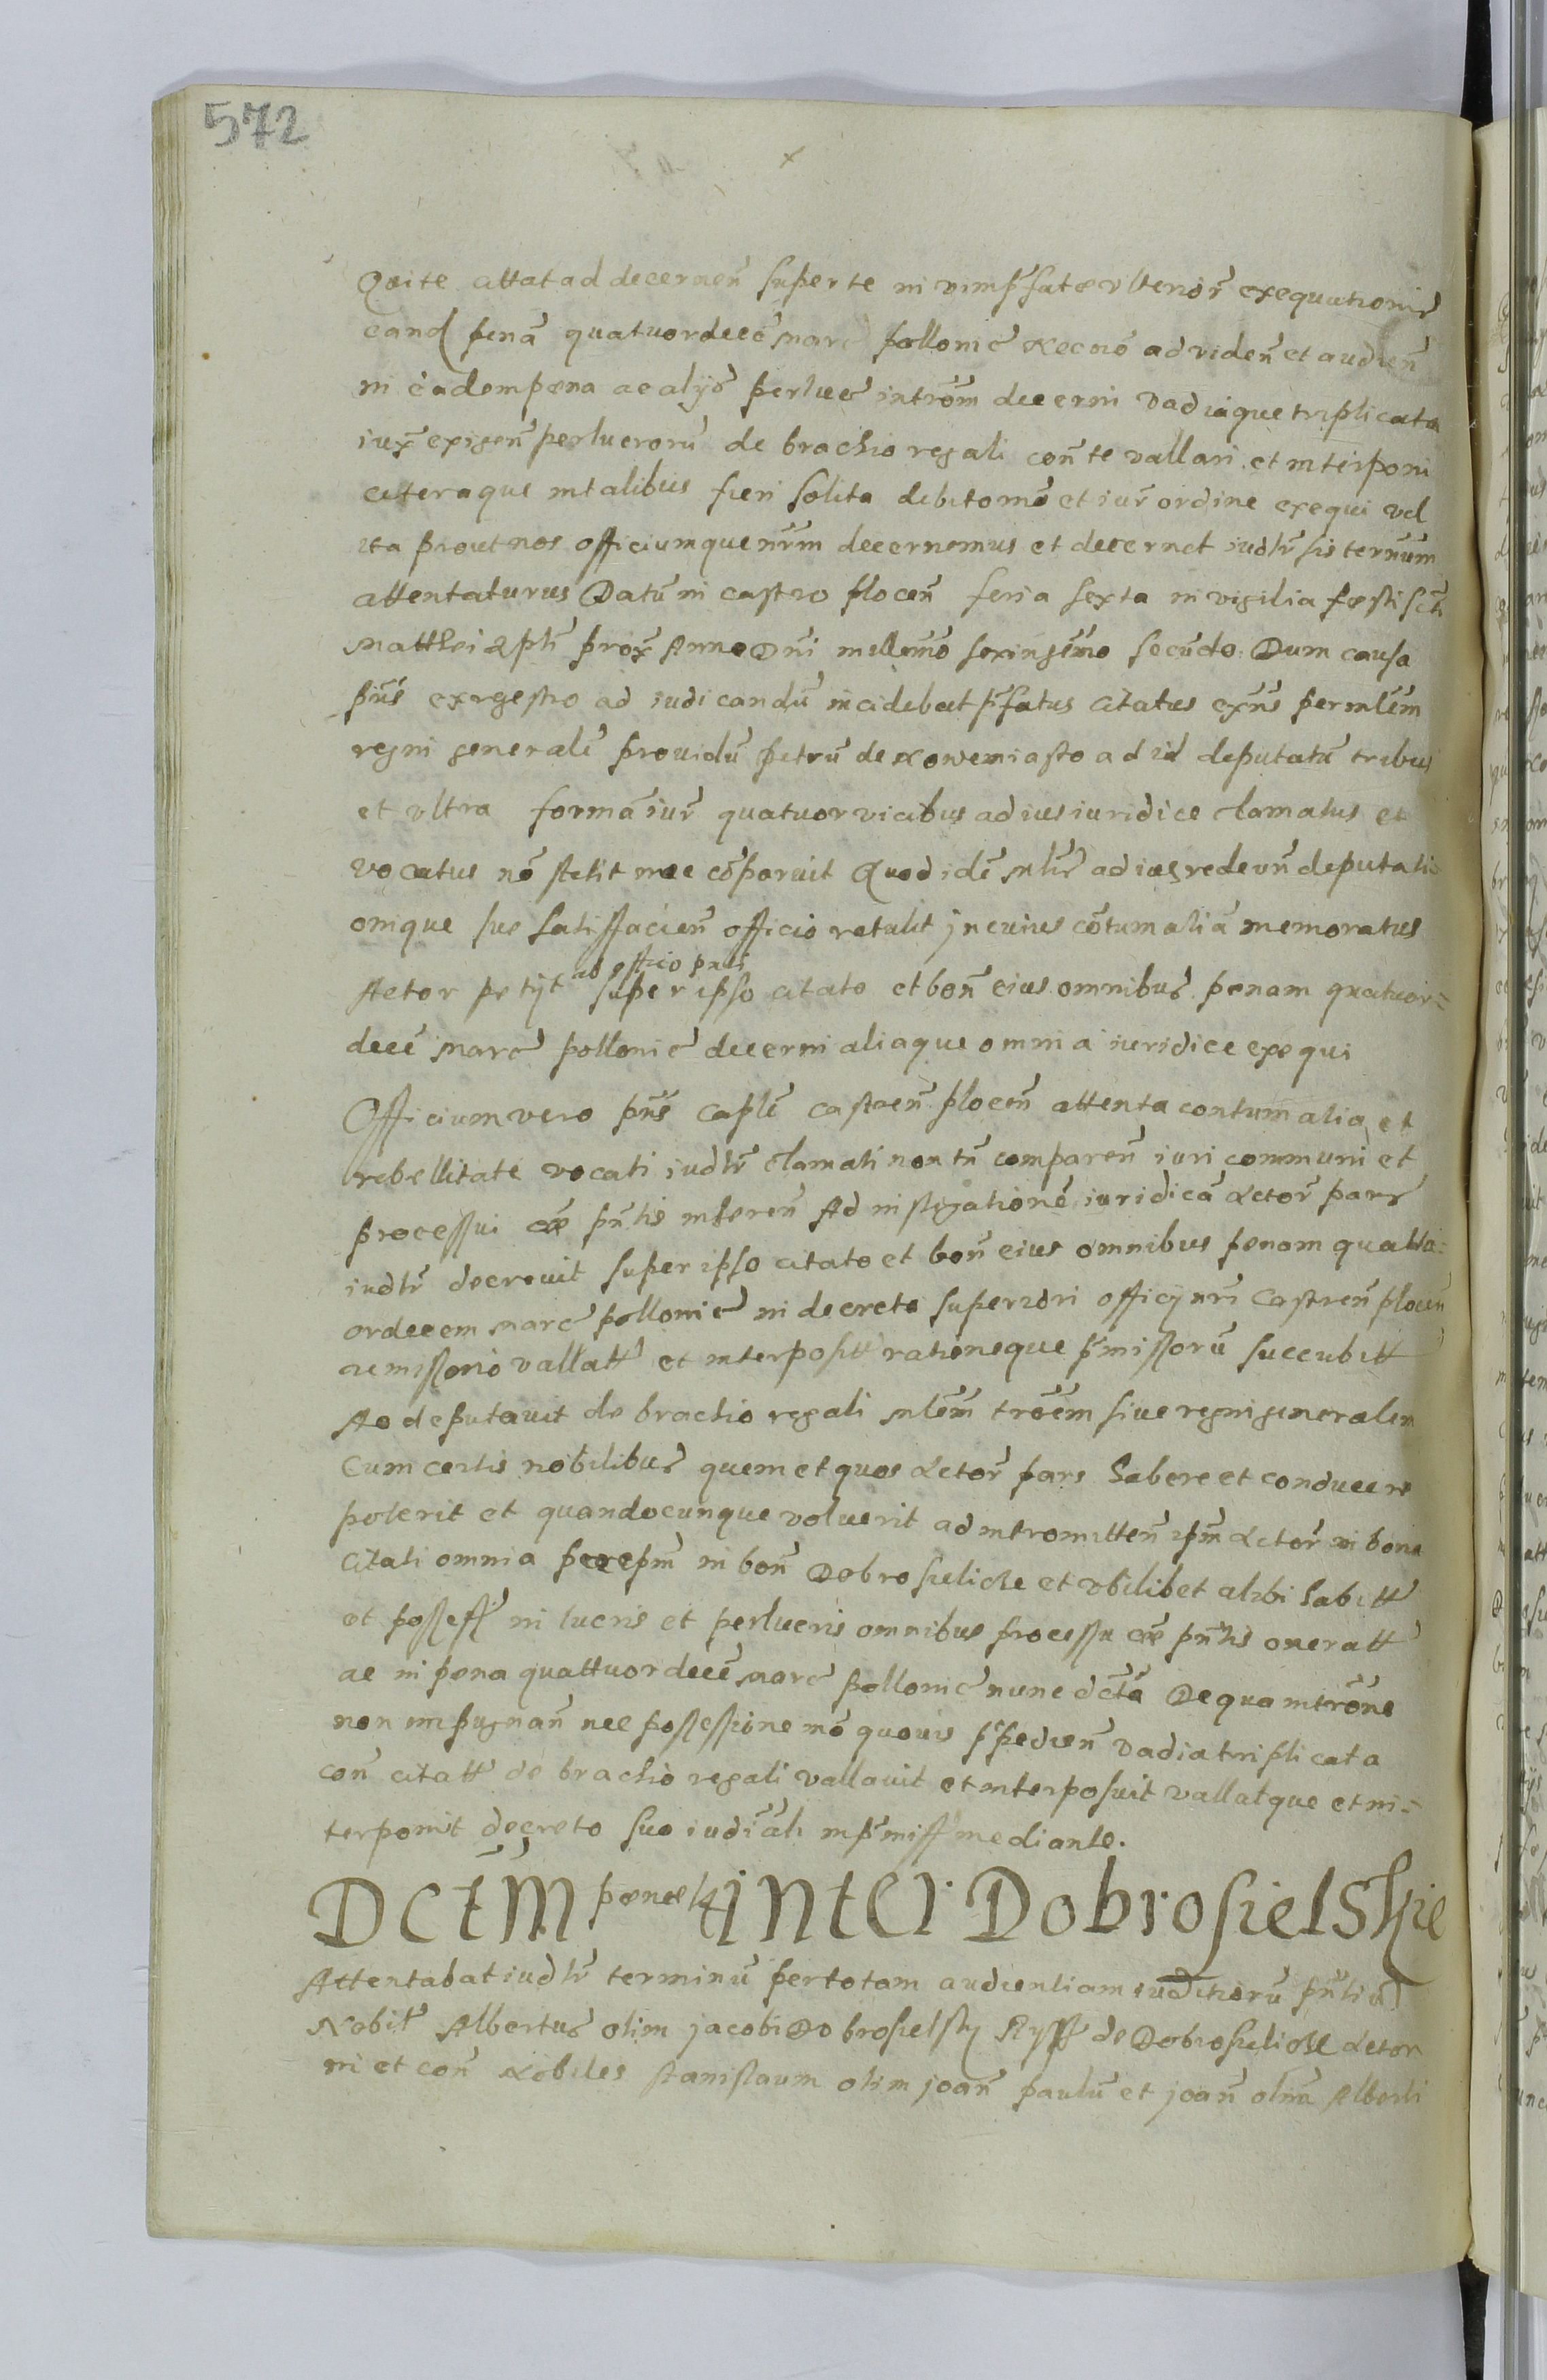 572
Qui te cittat ad decernen̄ super te in vim p̄fatae ulterior̄ exequutionis
eand penā quatuordecē marc pollonic Necnō ad viden̄ et audien̄
in eadem paena ac alijs perlucr̄ introm̄ decerni Vadiaque triplicata
iux̄ exigen̄ perlucrorū de brachio regali con̄ te vallari et interponi
ceteraque in talibus fieri solita debito mō et iur̄ ordine exequi vel
ita prout nos officiumque nr̄m decernemus et decernet iudlr̄ sis terminūm
attentaturus Datū in castro plocen̄ feria sexta in vigilia festi Scti
Matthei Apli prox̄ Anno Dn̄i millemo sexingēmo secūdo Dum causa
pn̄s ex regestro ad iudicandū incidebat p̄fatus citatus exn̄s per mlēm
regni generalē providū Petrū de Nowemiasto ad id deputatū tribus
et vltra formā iur̄ quatuor vicibus ad ius iuridice clamatus et
vocatus nō stetit nec cōparuit Quod idē mlr̄ ad ius redeun̄ deputati
onique sue satisfacien̄ officio retulit in cuius cōtumatiā memoratus
ab officio pn̄ti
Actor petijt super ipso citato et bon̄ eius omnibus penam quatuor=
decē marc pollonic decerni aliaque omnia iuridice exequi
Officium vero pn̄s Caplē castren̄ plocen̄ attenta contumatia et
rebellitate vocati iudlr̄ clamati non tn̄ comparen̄ iuri communi et
processui cāe pn̄tis inheren̄ Ad instigationē iuridicā Actor̄ partis
iudlr̄ decrevit super ipso citato et bon̄ eius omnibus penam quattu=
ordecem marc pollonic in decreto superiori officij nr̄i Castren̄ plocen̄
remissorio vallatt et interpositt rationeque p̄missorū succubitt
Ac deputavit de brachio regali mlēm trōem sive regni generalem
Cum certis nobilibus quem et quos Actor̄ pars habere et conducere
poterit et quandocunque voluerit ad intromitten̄ ipm̄ Actor̄ in bona
citati omnia pexepm̄ in bon̄ Dobrosielicze et vbilibet alibi habitt
et possess in lucris et perlucris omnibus processu cāe pn̄tis oneratt
ac in pena quattuordecē marc pollonic nunc dctā De qua intron̄e
non impugnan̄ nec possessione mō quovis p̄pedien̄ vadia triplicata
con̄ citatt de brachio regali vallavit et interposuit vallatque et in=
terponit decreto suo iudiāli in p̄miss mediante.
Dctm paenae 14 inter Dobrosielskie
Attentabat iudlr̄ terminū per totam audientiam iuditiorū pn̄tiū
Nobil Albertus olim Jacobi Dobrosielsky de Dobrosielicze Actor
in et con̄ Nobiles Stanislaum olim Joan̄ Paulū et Joan̄ olim Alberti